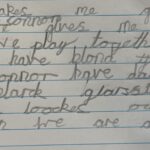 akes me
connor
gives me
ve play togeth
have blond
onnor have da
black glasst
loookes
tre are